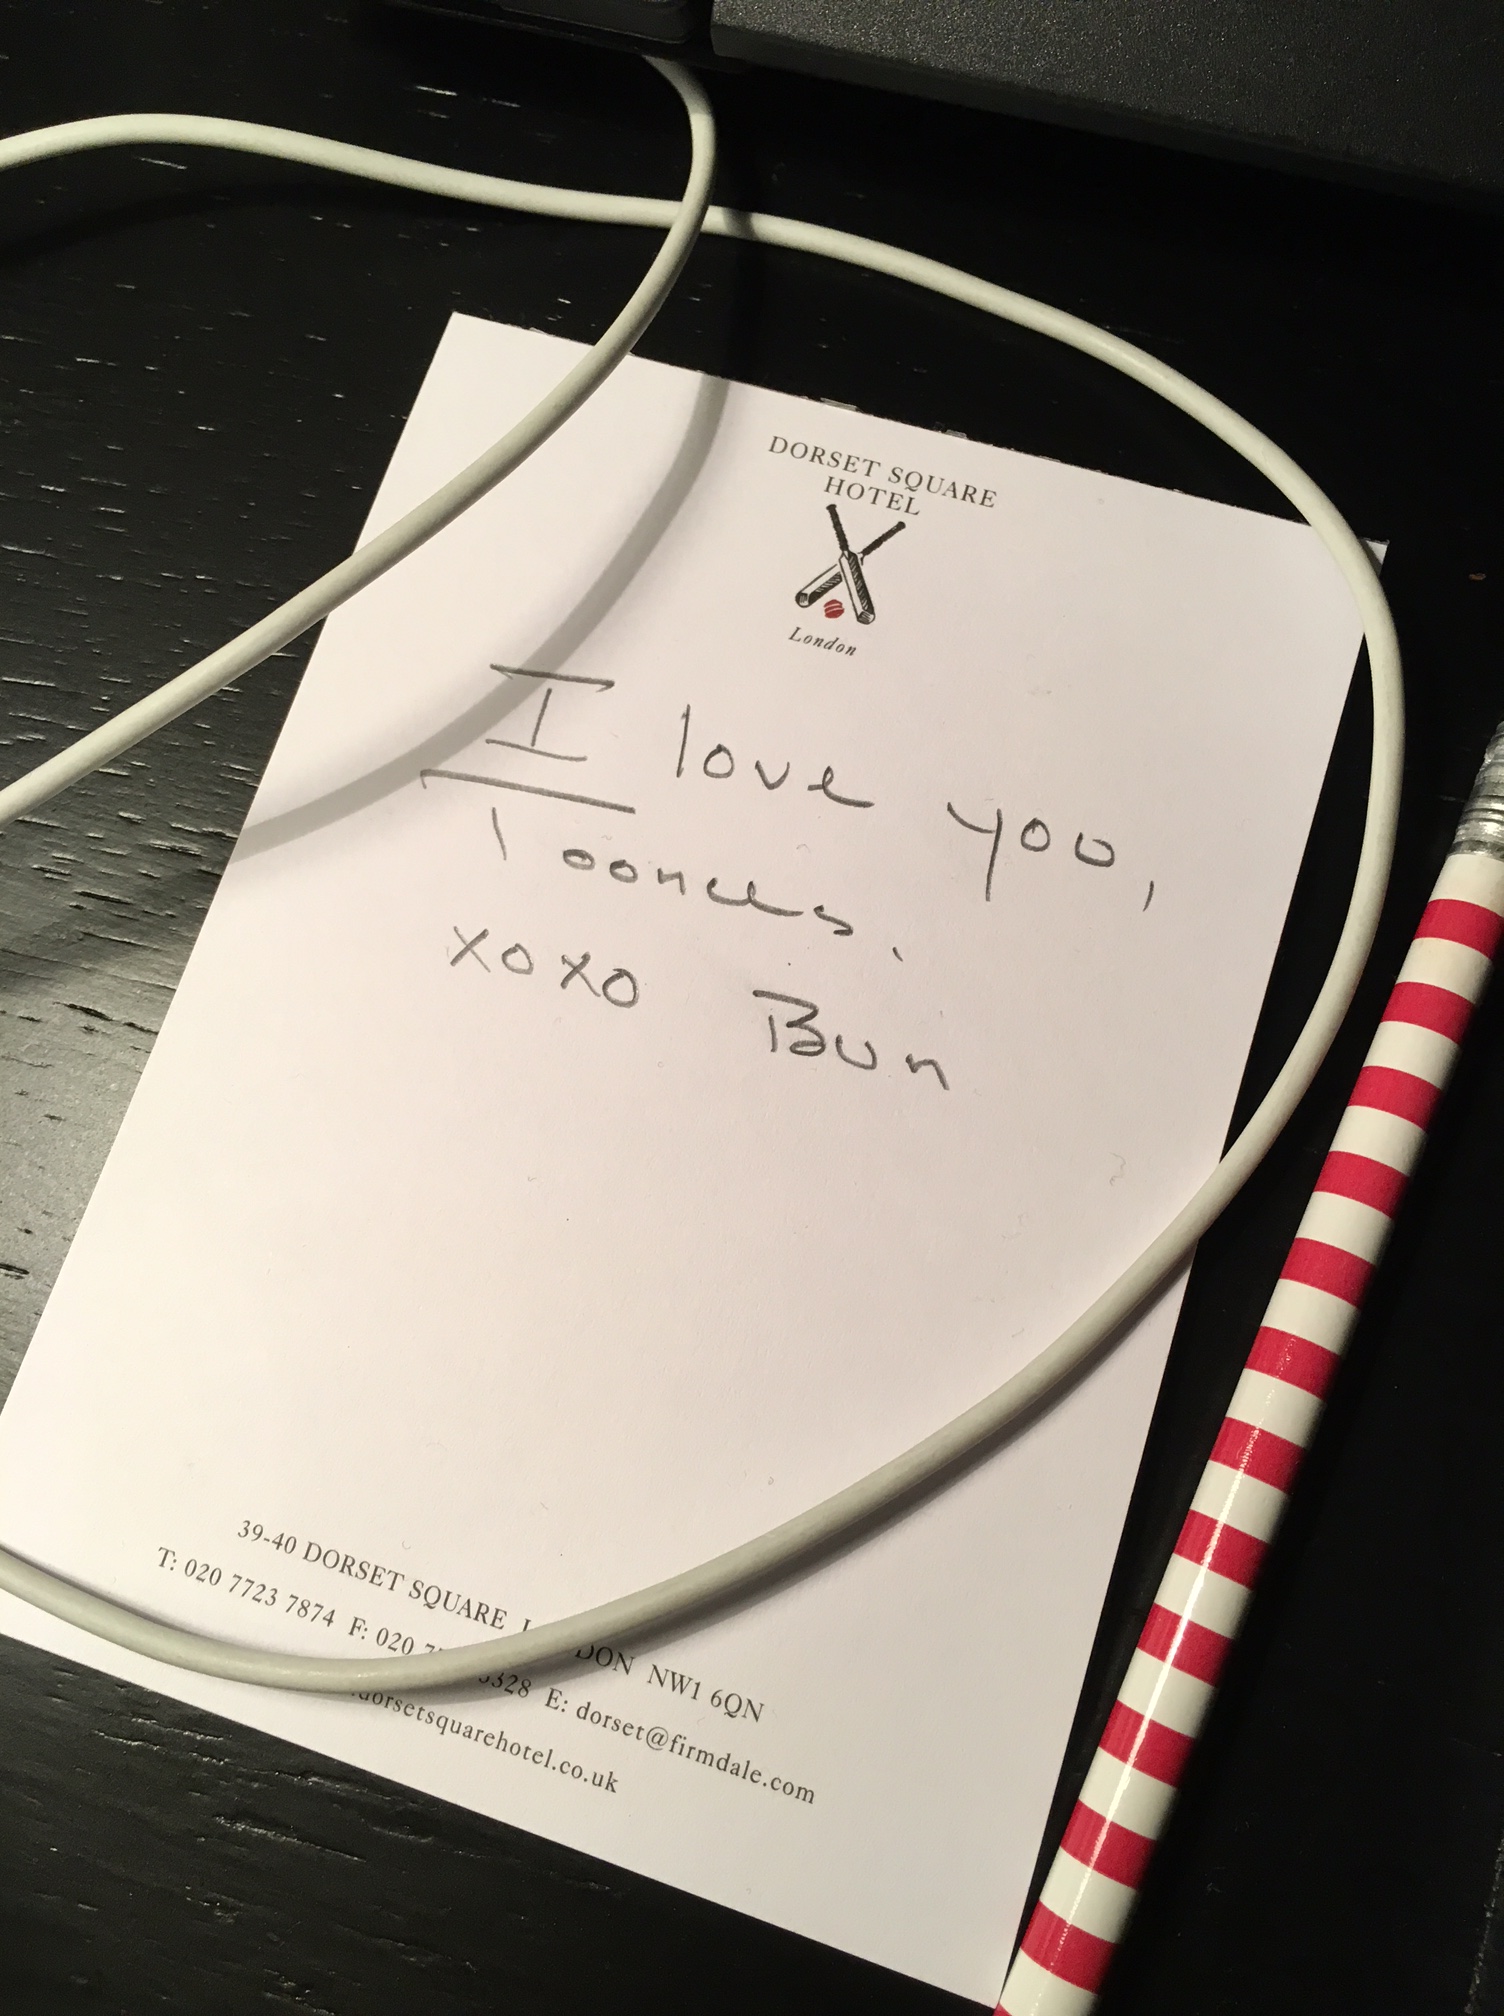 DORSET SQUARE
HOTEL
London
I love you,
Toonces.
xoxo Bun
39-40 DORSET SQUARE NW1 6QN
T: 020 7723 7874 F: 020 E: dorset@firmdale.com
dorsetsquarehotel.co.uk